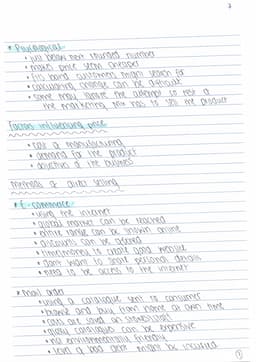 • Psychological
• just below next rounded number
• makes price seem cheaper
• customers might search for
• calculating change can be difficult
• some may ignore the attempt so rest of
the marketing mix has to sell the product
Factors influencing price
• cost of manufacturing
• demand for the product
• objectives of the business
methods of direct selling
• E-commerce
• using the internet
• global market can be reached
• entire range can be shown online
• discounts can be offered
• time/money to create good website
• don't want to share personal details
• need to be access to the internet
• Mail order
• using a catalogue sent to consumer
• browse and buy from home at own time
• costs are
• glossy catalogue can be expensive
• not environmentally friendly
• level of bad debt might be incurred
①